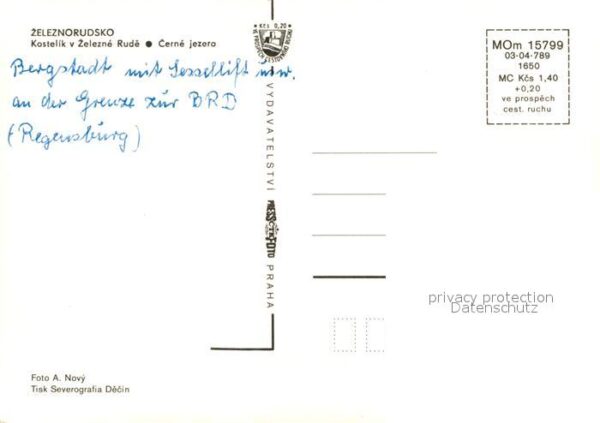 ŽELEZNORUDSKO
Kostelík v Železné Rudě ● Černé jezero
Bergstadt mit Sessellift usw.
an der Grenze zur BRD
(Regensburg)
Kčs 0,20
VYDAVATELSTVÍ
PRESSFOTO
PRAHA
MOm 15799
03-04-789
1650
MC Kčs 1,40
+0,20
ve prospěch
cest. ruchu
privacy protection
Datenschutz
Foto A. Nový
Tisk Severografia Děčín